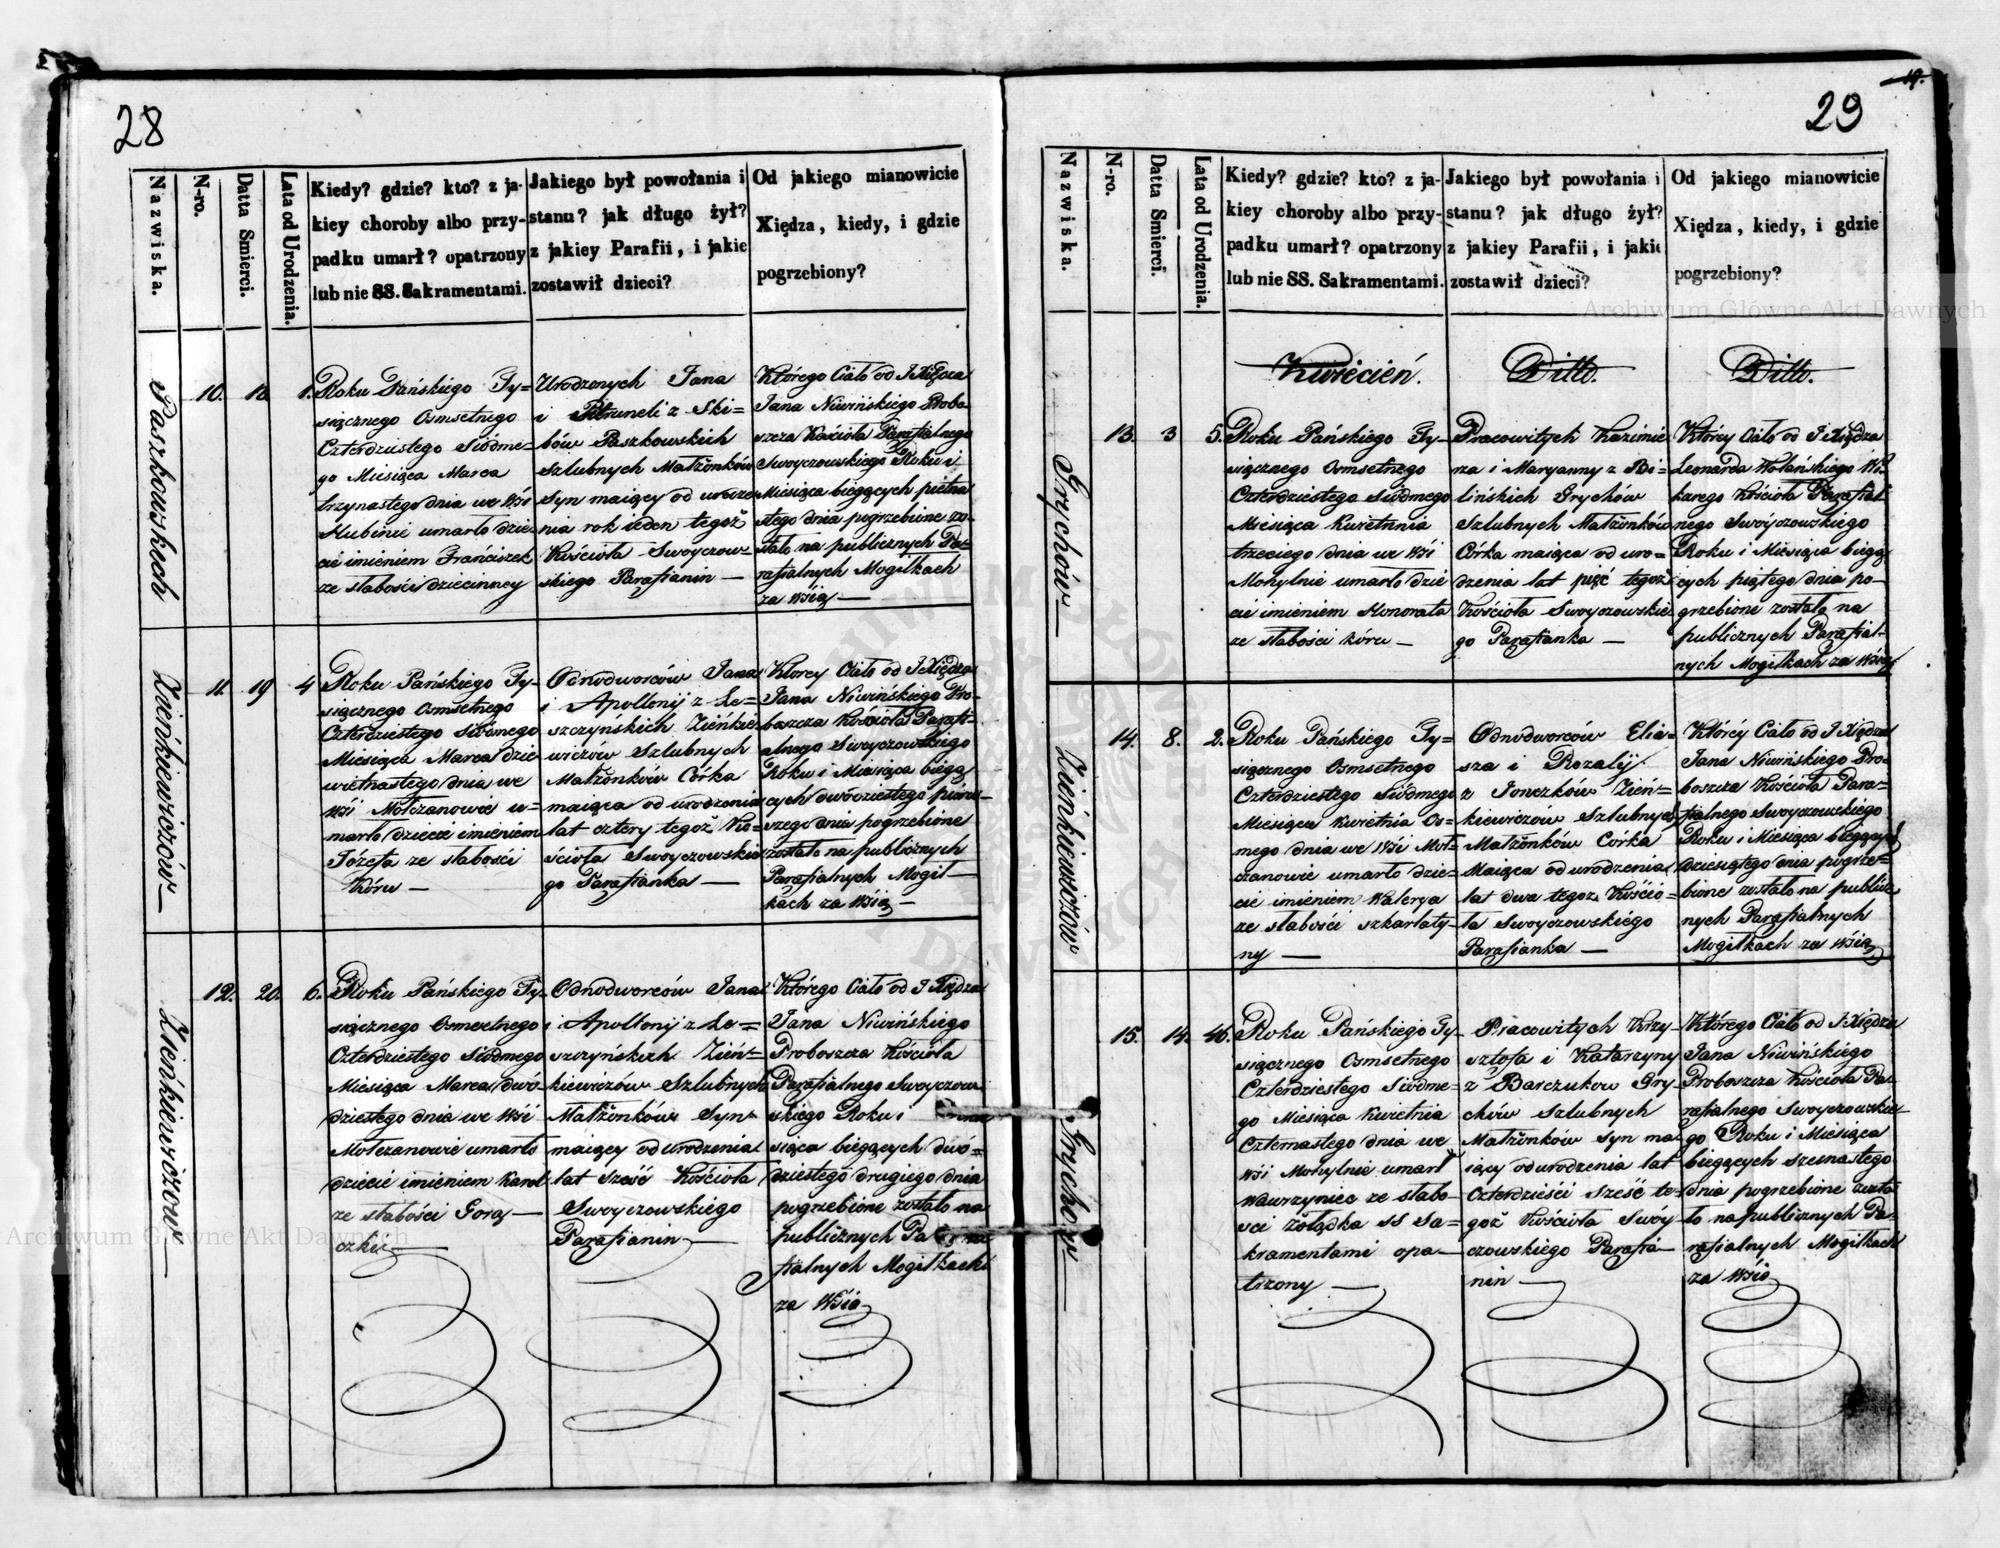 28
Nazwiska.
N-ro.
Datta Smierci.
Lata od Urodzenia.
Kiedy? gdzie? kto? z ja-
kiey choroby albo przy-
padku umarł? opatrzony
lub nie SS. Sakramentami.
Jakiego był powołania i
stanu? jak długo żył?
z jakiey Parafii, i jakie
zostawił dzieci?
Od jakiego mianowicie
Xiędza, kiedy, i gdzie
pogrzebiony?
Paszkowskich
10.
1.
Roku Pańskiego Ty=
siącznego Osmsetnego
Czterdziestego Siódme=
go Miesiąca Marca
trzynastego dnia we Wsi
Hubinie umarło dzie
cie imieniem Franciszek
ze słabości dziecinney
Urodzonych Jana
i Petruneli z Ski=
bów Paszkowskich
Szlubnych Małżonków
Syn maiący od urodze
nia rok ieden tegoż
Kościoła Swoyczow=
skiego Parafianin —
Którego Ciało od J Xiędza
Jana Niwińskiego Probo
szcza Kościoła Parafialnego
Swoyczowskiego Roku i
Miesiąca bieących piętna
stego dnia pogrzebione zo=
stało na publicznych Pa=
rafialnych Mogiłkach
za Wsią —
Zieńkiewiczów —
11.
19
4
Roku Pańskiego Ty=
siącznego Osmsetnego
Czterdziestego Siódmego
Miesiąca Marca dzie
wietnastego dnia we
Wsi Mołczanowce u=
marło dziecie imieniem
Józefa ze słabości
Kóru —
Odnodworców Jana
i Apollonij z Le=
szczyńskich Zieńkie
wiczów Szlubnych
Małżonków Córka
maiąca od urodzenia
lat cztery tegoż Ko=
ścioła Swoyczowskie
go Parafianka —
Ktorey Ciało od J Xiędza
Jana Niwińskiego Pro=
boszcza Kościoła Parafi=
alnego Swoyczowskiego
Roku i Miesiąca biegą
cych dwódziestego pierw=
szego dnia pogrzebione
zostało na publicznych
Parafialnych Mogił—
kach za Wsią —
Zieńkiewiczow —
12.
20.
6.
Roku Pańskiego Ty=
siącznego Osmsetnego
Czterdziestego Siódmego
Miesiąca Marca dwó
dziestego dnia we Wsi
Mołczanowie umarło
dziecie imieniem Karol
ze słabości Gorą—
czki —
Odnodworców Jana
i Apollonij z Le=
szczyńskich Zień=
kiewiczów Szlubnych
Małżonków Syn
maiący od urodzenia
lat sześć Kościoła
Swoyczowskiego
Parafianin —
Którego Ciało od J Xiędza
Jana Niwińskiego
Proboszcza Kościoła
Parafialnego Swoyczow
skiego Roku i
siąca bieących dwó=
dziestego drugiego dnia
pogrzebione zostało na
publicznych Pa
fialnych Mogiłkach
za Wsią
19.
29
Nazwiska.
N-ro.
Datta Smierci.
Lata od Urodzenia.
Kiedy? gdzie? kto? z ja-
kiey choroby albo przy-
padku umarł? opatrzony
lub nie SS. Sakramentami.
Jakiego był powołania i
stanu? jak długo żył?
z jakiey Parafii, i jakie
zostawił dzieci?
Od jakiego mianowicie
Xiędza, kiedy, i gdzie
pogrzebiony?
Kwiecień.
Ditto.
Ditto.
Grychów —
13.
3
5.
Roku Pańskiego Ty=
siącznego Osmsetnego
Czterdziestego Siódmego
Miesiąca Kwietnia
trzeciego dnia we Wsi
Mohylnie umarło dzie
cie imieniem Honorata
ze słabości kóru —
Pracowitych Kazimie
rza i Maryanny z Bi=
lińskich Grychów
Szlubnych Małżonków
Córka maiąca od uro=
dzenia lat pięć tegoż
Kościoła Swoyczowskie
go Parafianka —
Którey Ciało od J Xiędza
Leonarda Wolańskiego Wi
karego Kościoła Parafial
nego Swoyczowskiego
Roku i Miesiąca biegą
cych piątego dnia po=
grzebione zostało na
publicznych Parafial=
nych Mogiłkach za Wsią
Zieńkiewiczów
14.
8.
2.
Roku Pańskiego Ty=
siącznego Osmsetnego
Czterdziestego Siódmego
Miesiąca Kwietnia Os=
mego dnia we Wsi Moł=
czanowie umarło dzie=
cie imieniem Walerya
ze słabości szkarlaty=
ny —
Odnodworców Elia=
sza i Rozalij
z Jonczków Zień=
kiewiczów Szlubnych
Małżonków Corka
Maiąca od urodzenia
lat dwa tegoz Kościo=
ła Swoyczowskiego
Parafianka —
Którey Ciało od J Xiędza
Jana Niwińskiego Pro=
boszcza Kościoła Para=
fialnego Swoyczowskiego
Roku i Miesiąca bieących
dziesiątego dnia pogrze=
bione zostało na publicz
nych Parafialnych
Mogiłkach za Wsią
Grychow —
15.
14.
46.
Roku Pańskiego Ty=
siącznego Osmsetnego
Czterdziestego Siódme=
go Miesiąca Kwietnia
Czternastego dnia we
Wsi Mohylnie umarł
Wawrzyniec ze słabo
sci żołądka SS Sa=
kramentami opa—
trzony —
Pracowitych Krzy=
sztofa i Katarzyny
z Barczukow Gry
chów Szlubnych
Małżonków Syn ma
iący od urodzenia lat
Czterdzieści Sześć te=
goż Kościoła Swoy
czowskiego Parafia—
nin —
Którego Ciało od J Xiędza
Jana Niwińskiego
Proboszcza Kościoła Pa=
rafialnego Swoyczowskie=
go Roku i Miesiąca
biegących szesnastego
dnia pogrzebione zosta
ło na publicznych Pa=
rafialnych Mogiłkach
za Wsią
Archiwum Główne Akt Dawnych
Archiwum Główne Akt Dawnych